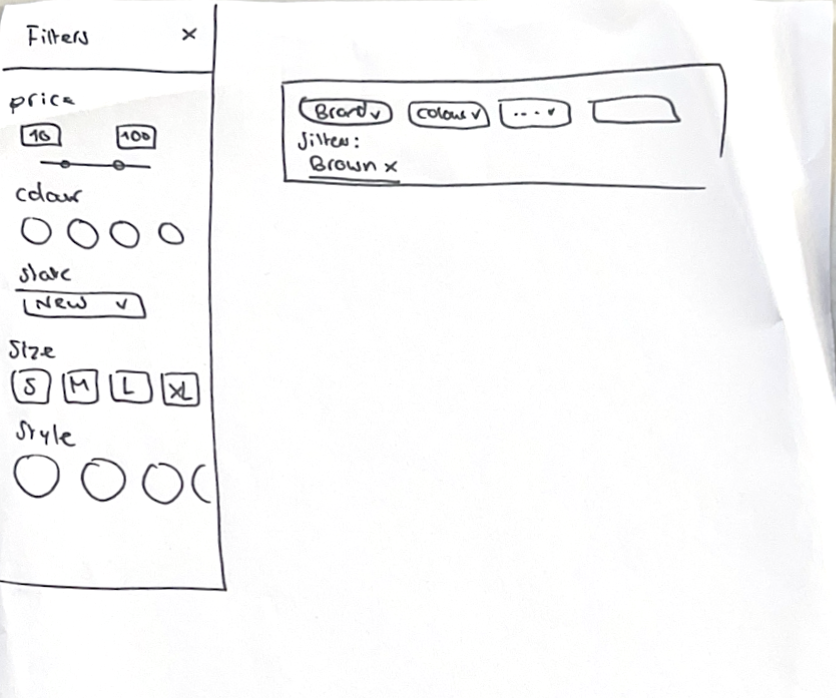 Filters x
price
10 100
colour
State
New v
Size
S M L XL
Style
Brand v colour v ... v
filters:
Brown x